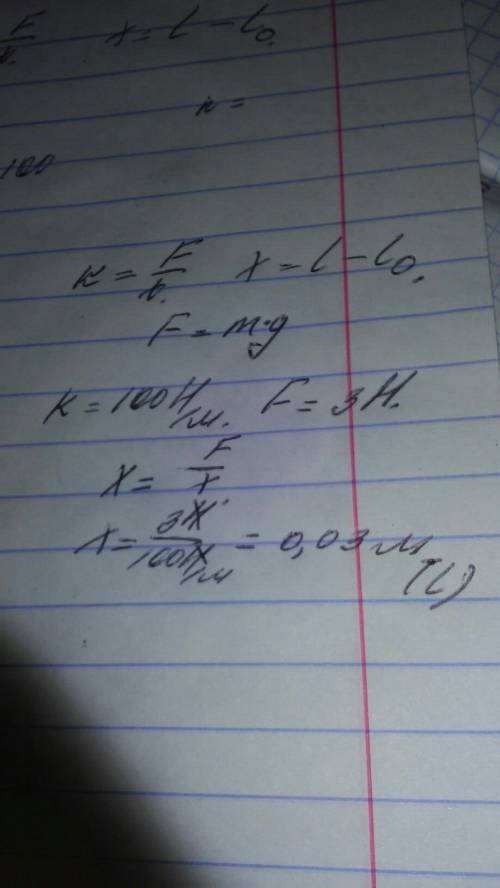 F/x. x = l - l₀.
к =
100
к = F/x. x = l - l₀.
F = m·g
к = 100 Н/м. F = 3 Н.
x = F/x
x = 3Н/100Н/м = 0,03 м
(L)